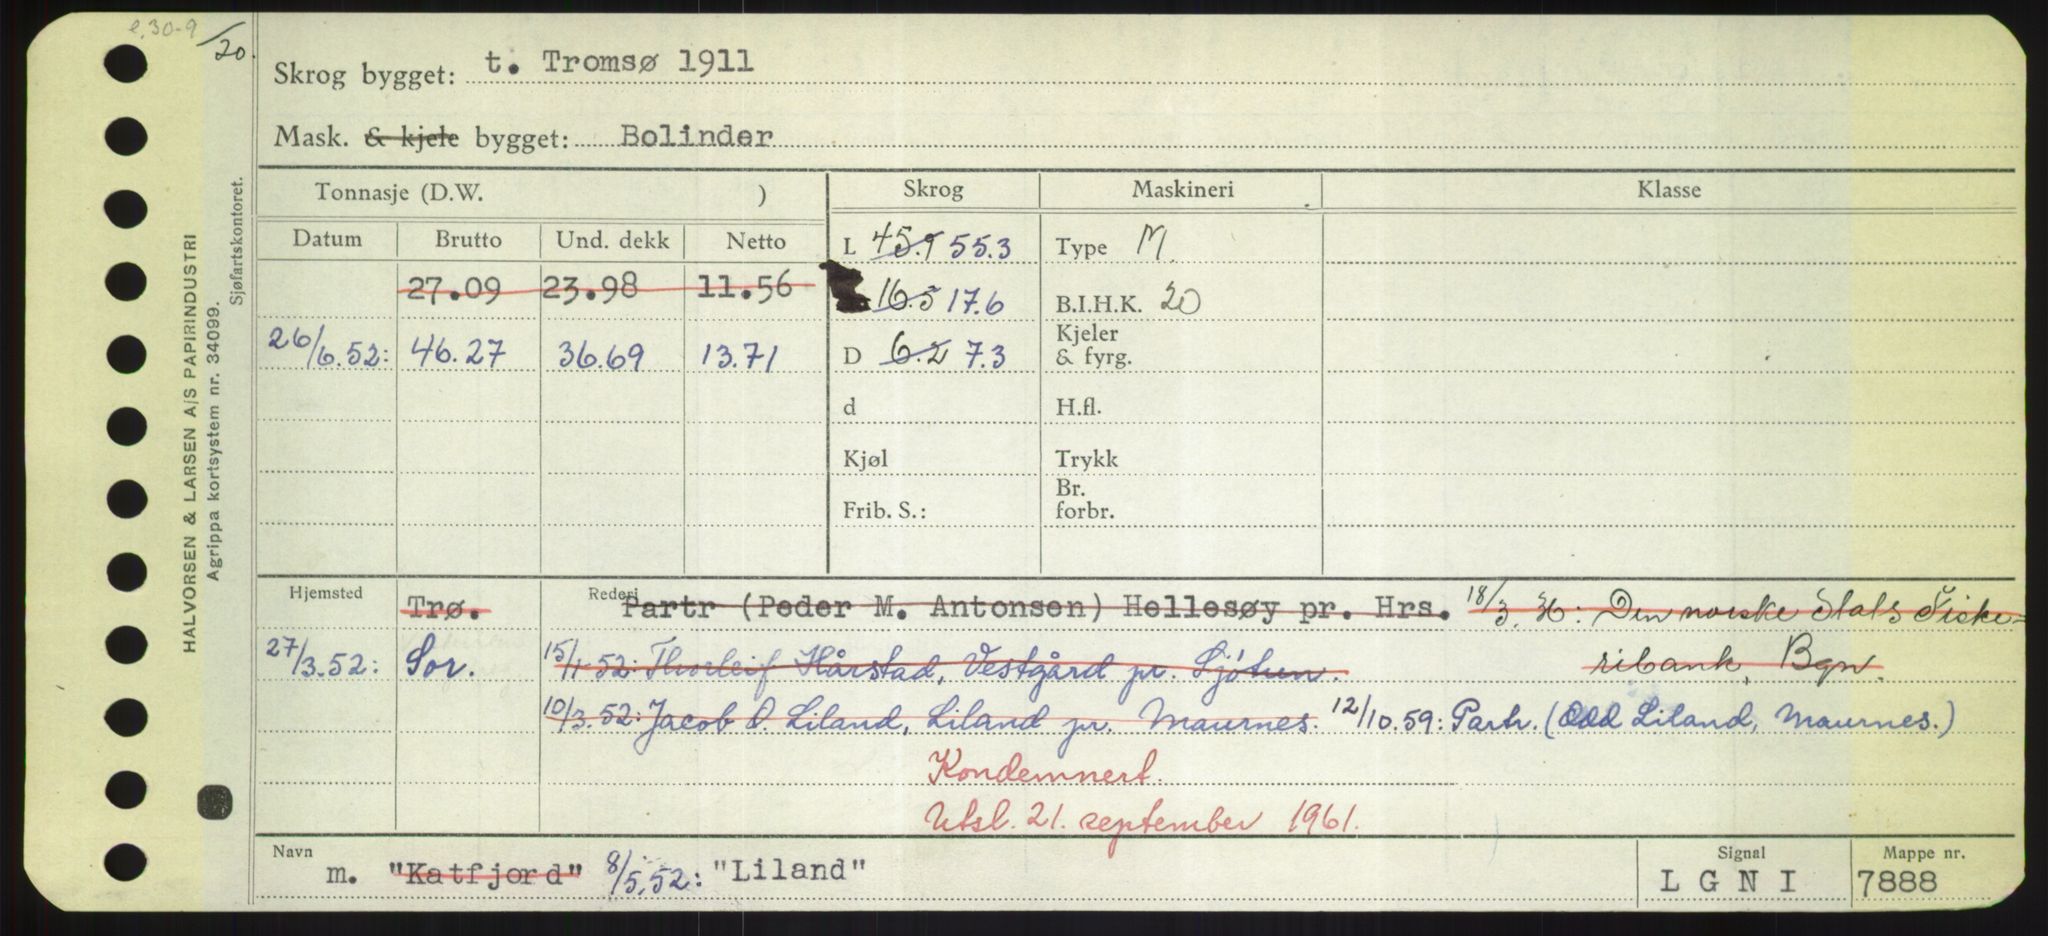 e. 30-9
/20.
HALVORSEN & LARSEN A/S PAPIRINDUSTRI
Agrippa kortsystem nr. 34099.
Sjøfartskontoret.
Skrog bygget: t. Tromsø 1911
Mask. & kjele bygget: Bolinder
Tonnasje (D.W. )
Skrog
Maskineri
Klasse
Datum Brutto Und. dekk Netto
L 45.9 55.3
Type M.
27.09 23.98 11.56
16.5 17.6
B.I.H.K. 20
26/6.52: 46.27 36.69 13.71
D 6.2 7.3
Kjeler
& fyrg.
d
H.fl.
Kjøl
Trykk
Frib. S.:
Br.
forbr.
Hjemsted
Trø.
Rederi
Partr (Peder M. Antonsen) Hellesøy pr. Hrs. 18/3. 36: Den norske Stats Fiske=
27/3.52: Sor. 15/1-52: Thorleif Hårstad, Vestgård pr. Sjøtun. ribank, Bgn.
10/3.52: Jacob O. Liland, Liland pr. Maurnes. 12/10.59: Partr. (Odd Liland, Maurnes.)
Kondemnert.
Utsl. 21. september 1961.
Navn
m. "Katfjord" 8/5.52: "Liland"
Signal
L G N I
Mappe nr.
7888